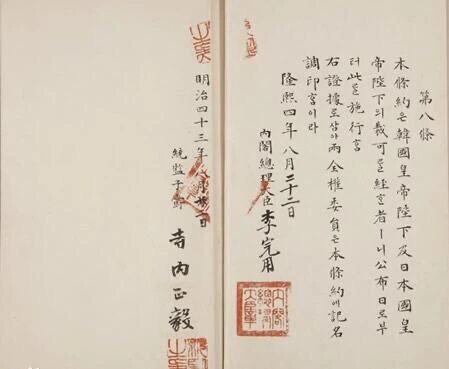 第八條
本條約은韓國皇帝陛下及日本國皇
帝陛下의裁可를經ᄒᆞᆫ者ㅣ니公布日로부
터此를施行홈
右證據로삼아兩全權委員은本條約에記名
調印홈이라
隆熙四年八月二十二日
內閣總理大臣李完用
內閣總理大臣章
明治四十三年八月 日
統監子爵寺內正毅